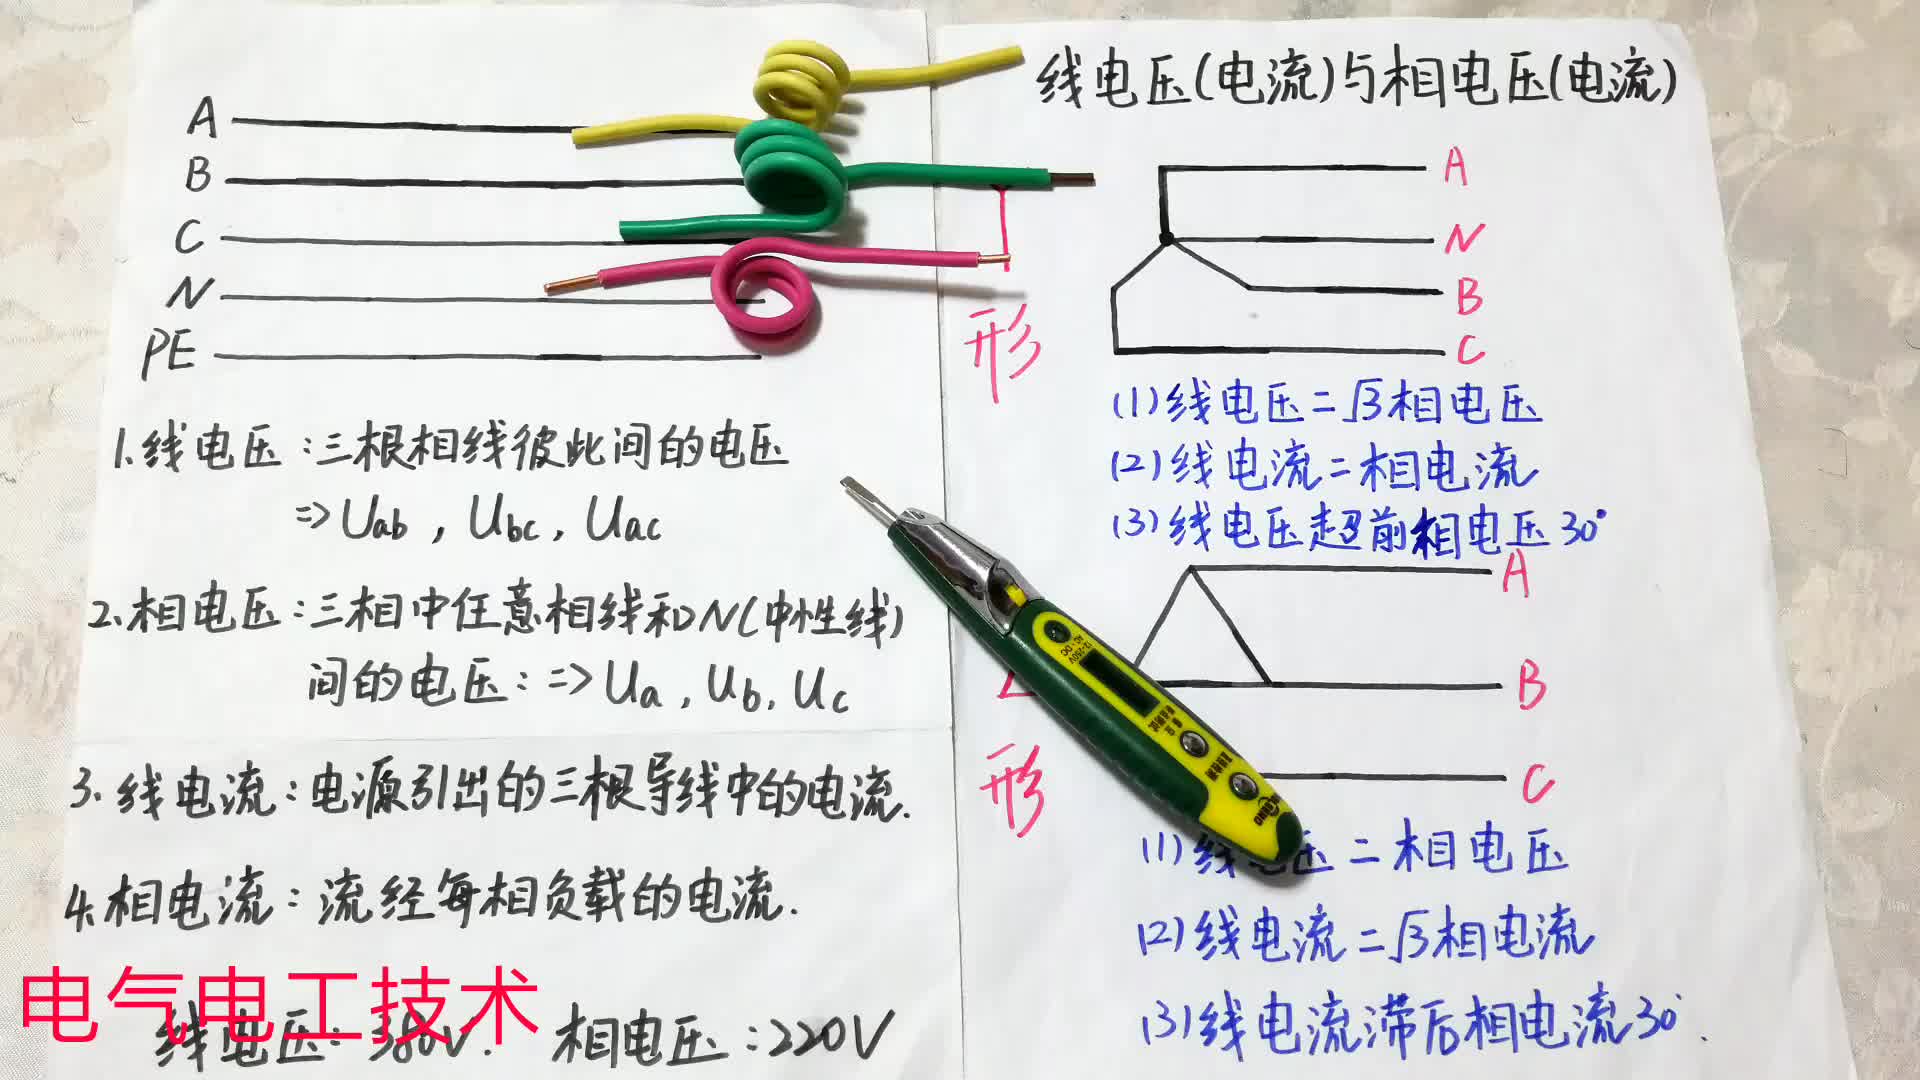 线电压(电流)与相电压(电流)
A
B
C
N
PE
1.线电压:三根相线彼此间的电压
=> Uab, Ubc, Uac
2.相电压:三相中任意相线和N(中性线)
间的电压: => Ua, Ub, Uc
3.线电流:电源引出的三根导线中的电流.
4.相电流:流经每相负载的电流.
线电压:380V. 相电压:220V
电气电工技术
形
A
N
B
C
(1)线电压=√3相电压
(2)线电流=相电流
(3)线电压超前相电压30°
形
A
B
C
(1)线电压=相电压
(2)线电流=√3相电流
(3)线电流滞后相电流30°.
12-250V
AC·DC